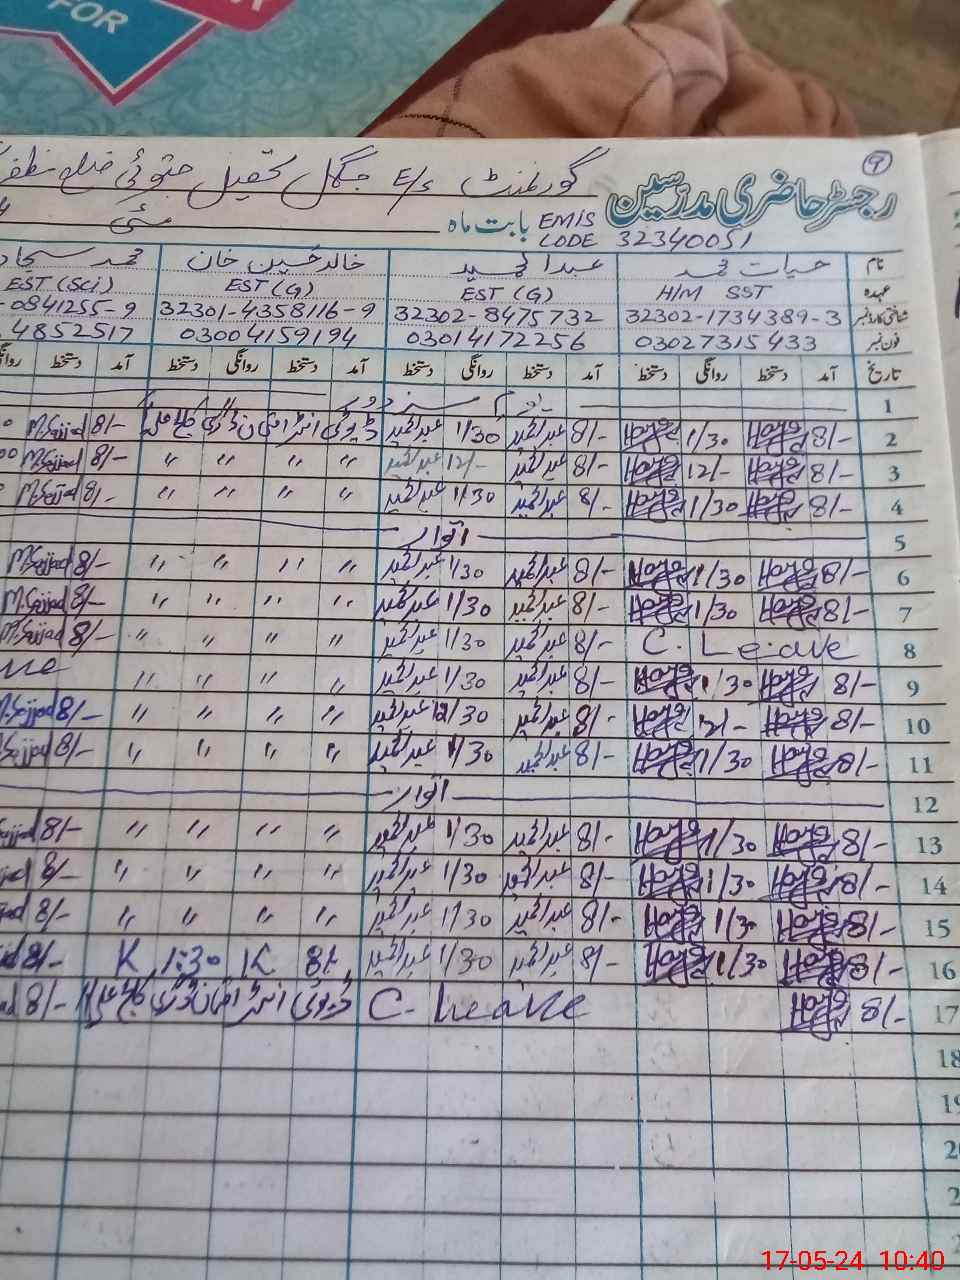 FOR
۹
رجسٹر حاضری مدرسین گورنمنٹ E/S جھگل تحصیل جتوئی ضلع مظفر
EMIS CODE 32340051 بابت ماہ مئی
نام حیات محمد عبدالحمید خالد حسین خان محمد سجاد
عہدہ H/M SST EST (G) EST (G) EST (Sci)
شناختی کارڈ نمبر 32302-1734389-3 32302-8475732 32301-4358116-9 -0841255-9
فون نمبر 03027315433 03014172256 03004159194 4852517
تاریخ آمد دستخط روانگی دستخط آمد دستخط روانگی دستخط آمد دستخط روانگی دستخط آمد دستخط
1 یوم مزدور
2 8/- 1/30 8/- عبدالحمید 1/30 عبدالحمید ڈیوٹی انٹر امتحان 8/- M.Sajjad
3 8/- 12/- 8/- عبدالحمید 12/- عبدالحمید " " " " 8/- M.Sajjad
4 8/- 1/30 8/- عبدالحمید 1/30 عبدالحمید " " " " 8/- M.Sajjad
5 اتوار
6 8/- 1/30 8/- عبدالحمید 1/30 عبدالحمید " " " " 8/- M.Sajjad
7 8/- 1/30 8/- عبدالحمید 1/30 عبدالحمید " " " " 8/- M.Sajjad
8 C. Leave 8/- عبدالحمید 1/30 عبدالحمید " " " " 8/- M.Sajjad
9 8/- 1/30 8/- عبدالحمید 1/30 عبدالحمید " " " " ve
10 8/- 12/- 8/- عبدالحمید 12/30 عبدالحمید " " " " 8/- M.Sajjad
11 8/- 1/30 8/- عبدالحمید 1/30 عبدالحمید " " " " 8/- Sajjad
12 اتوار
13 8/- 1/30 8/- عبدالحمید 1/30 عبدالحمید " " " " 8/- ajjad
14 8/- 1/30 8/- عبدالحمید 1/30 عبدالحمید " " " " 8/- jjad
15 8/- 1/30 8/- عبدالحمید 1/30 عبدالحمید " " " " 8/- jad
16 8/- 1/30 8/- عبدالحمید 1/30 عبدالحمید 8/- K 1:30 K 8/-
17 8/- C. Leave ڈیوٹی انٹر امتحان 8/- ad
18
19
2
2
17-05-24 10:40